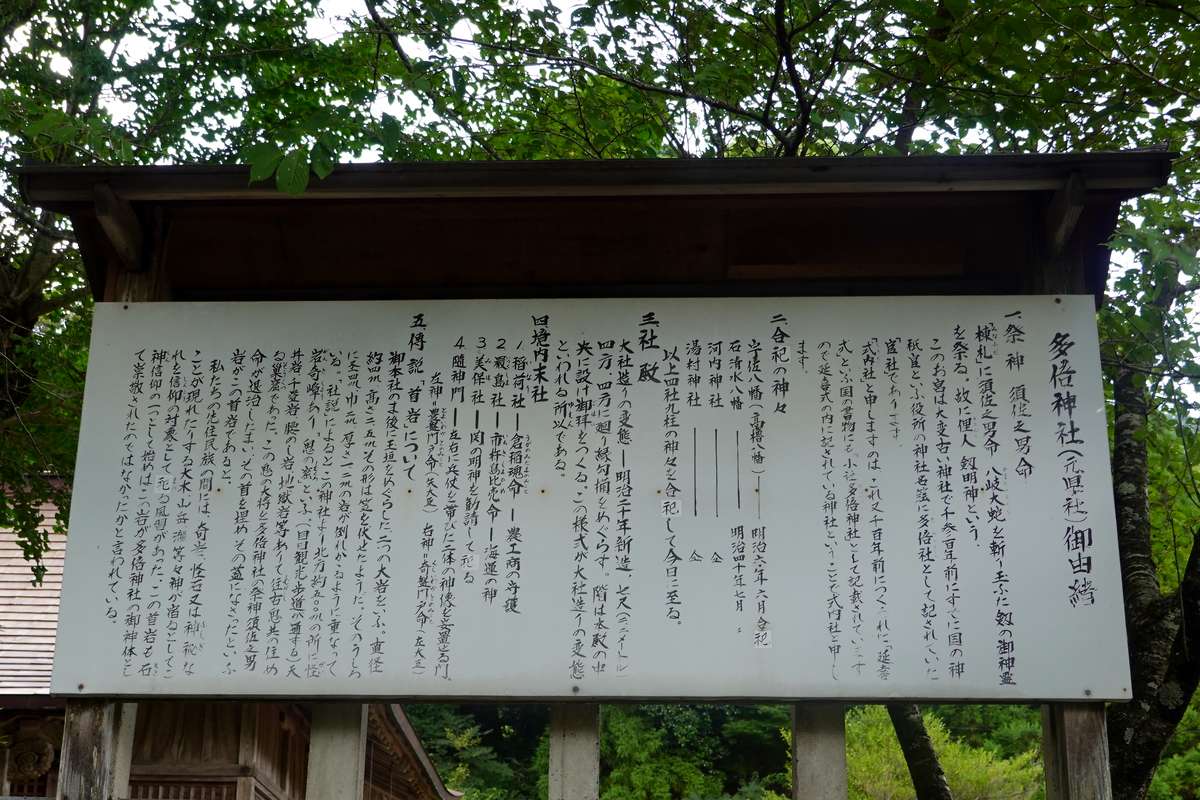 多倍神社(元県社)御由緒
一、祭神 須佐之男命
棟札に須佐之男命 八岐大蛇を斬り玉ふた剱の御神霊
を祭る。故に俚人剱明神という。
このお宮は大変古い神社で千参百年前にすでに国の神
祇官といふ役所の神社名簿に多倍社として記されていた
官社であります。
「式内社」と申しますのは、これ又千百年前につくられた「延喜
式」といふ国の書物にも小社多倍神社として記載されています
ので延喜式の内に記されている神社ということで式内社と申し
ます。
二、合祀の神々
宇佐八幡(高櫓八幡)―― 明治六年六月合祀
石清水八幡 ―― 明治四十年七月〃
河内神社 ―― 仝
湯村神社 ―― 仝
以上四社九柱の神々を合祀して今日に至る。
三、社殿
大社造りの変態―明治二十年新造、七尺(二メートル)
四方、四方に廻り縁勾欄をめぐらす。階は本殿の中
央に設け御拝をつくる。この様式が大社造りの変態
といわれる所以である。
四、境内末社
1稲荷社―倉稲魂命―農工商の守護
2厳島社―市杵島比売命―海運の神
3美保社―関の明神を勧請して祀る
4随神門―左右に兵仗を帯びた二体の神像を安置する門。
左神=豊磐門戸命(矢大臣) 右神=奇磐門戸命(左大臣)
五、傳説 首岩について
御本社のま後に玉垣をめぐらした二つの大岩をいふ。直径
約四米、高さ二・五米その形は笠を伏せたようで、そのうしろ
に玉四米、巾二米、厚さ一米の岩が倒れかゝるように重なって
いる。「社説によるとこの神社より北方約五〇〇米の所に怪
岩奇峰あり、鬼の窟といふ(目田観光歩道が通ずる)天
井岩、千変岩、腰のし岩、地獄岩等あって往古悪鬼の住め
る巣窟であった。この鬼の大将を多倍神社の祭神須佐之男
命が退治したまい、その首を埋めその蓋になさったといふ
岩がこの首岩であると。
私たちの先住民族の間には、奇岩、怪石又は神秘な
ことが現れたりする大木、山、岳、海等々神が宿るとしてこ
れを信仰の対象として祀る風習があった。この首岩も石
神信仰の一つとして始めはこの岩が多倍神社の御神体とし
て崇敬されたのではなかったかと言われている。